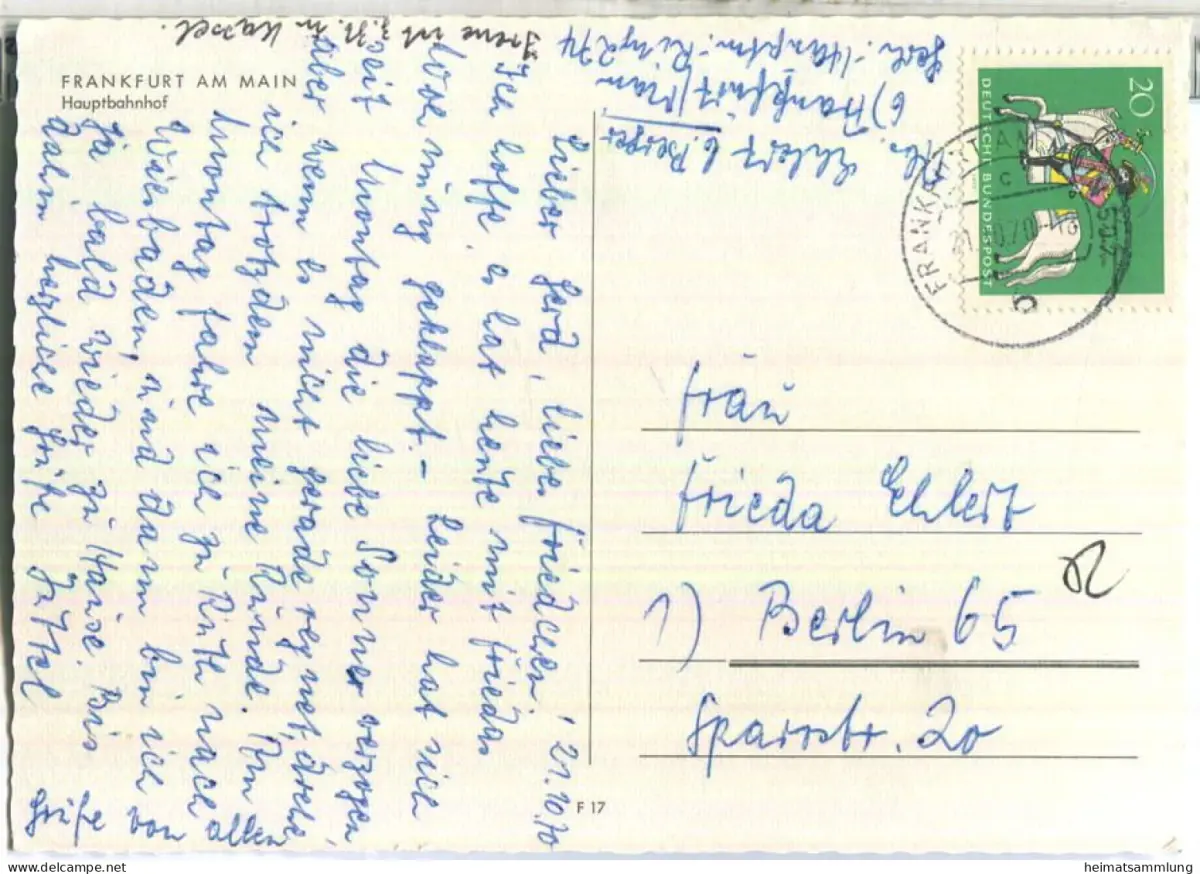 FRANKFURT AM MAIN
Hauptbahnhof
20
DEUTSCHE BUNDESPOST
FRANKFURT AM
21.10.70-18
Abs. Ehlert b. Berger
6) Frankfurt/Main
21.10.70
Lieber Gerd, liebe Friedchen!
Ich hoffe, es hat heute mit Friedas
Wohnung geklappt. - Leider hat sich
seit Montag die liebe Sonne verzogen
aber wenn es nicht gerade regnet, drehe
ich trotzdem meine Runde. Am
Montag fahre ich zu Ruth nach
Wiesbaden, und dann bin ich
ja bald wieder zu Hause. Bis
dahin herzliche Grüße
allen
von
Grüße
Irene ist z. Zt. in Kassel.
Frau
Frieda Ehlert
1) Berlin 65
Sparrstr. 20
F 17
heimatsammlung